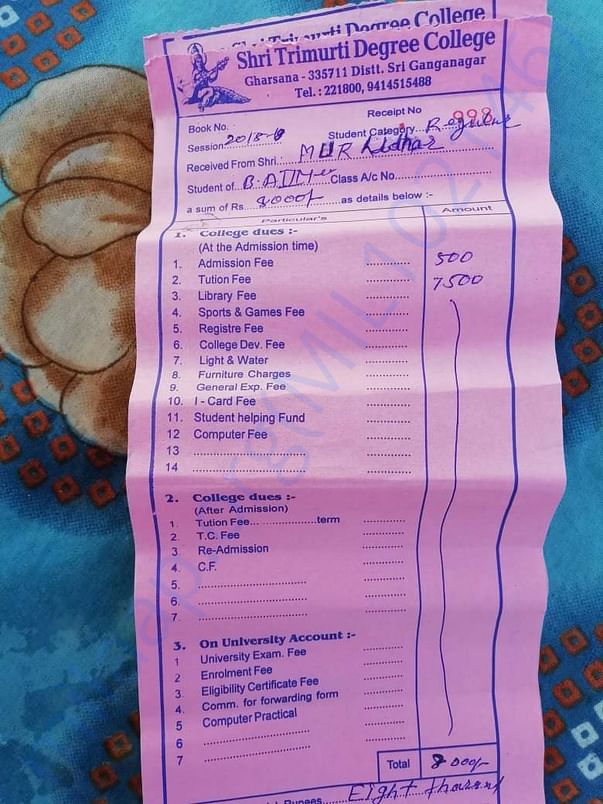 Shri Trimurti Degree College
Shri Trimurti Degree College
Gharsana - 335711 Distt. Sri Ganganagar
Tel.: 221800, 9414515488
Book No. Receipt No 998
Session 2018- Student Category Regular
Received From Shri.: MURLidhar
Student of B.A IIYer Class A/c No.
a sum of Rs 8000/- as details below :-
Particular's Amount
1. College dues :-
(At the Admission time)
1. Admission Fee 500
2. Tution Fee 7500
3. Library Fee
4. Sports & Games Fee
5. Registre Fee
6. College Dev. Fee
7. Light & Water
8. Furniture Charges
9. General Exp. Fee
10. I - Card Fee
11. Student helping Fund
12 Computer Fee
13
14
2. College dues :-
(After Admission)
1. Tution Fee....................term
2. T.C. Fee
3 Re-Admission
4. C.F.
5.
6.
7.
3. On University Account :-
1 University Exam. Fee
2 Enrolment Fee
3. Eligibility Certificate Fee
4. Comm. for forwarding form
5 Computer Practical
6
7
Total 8000/-
Rupees Eight thousand